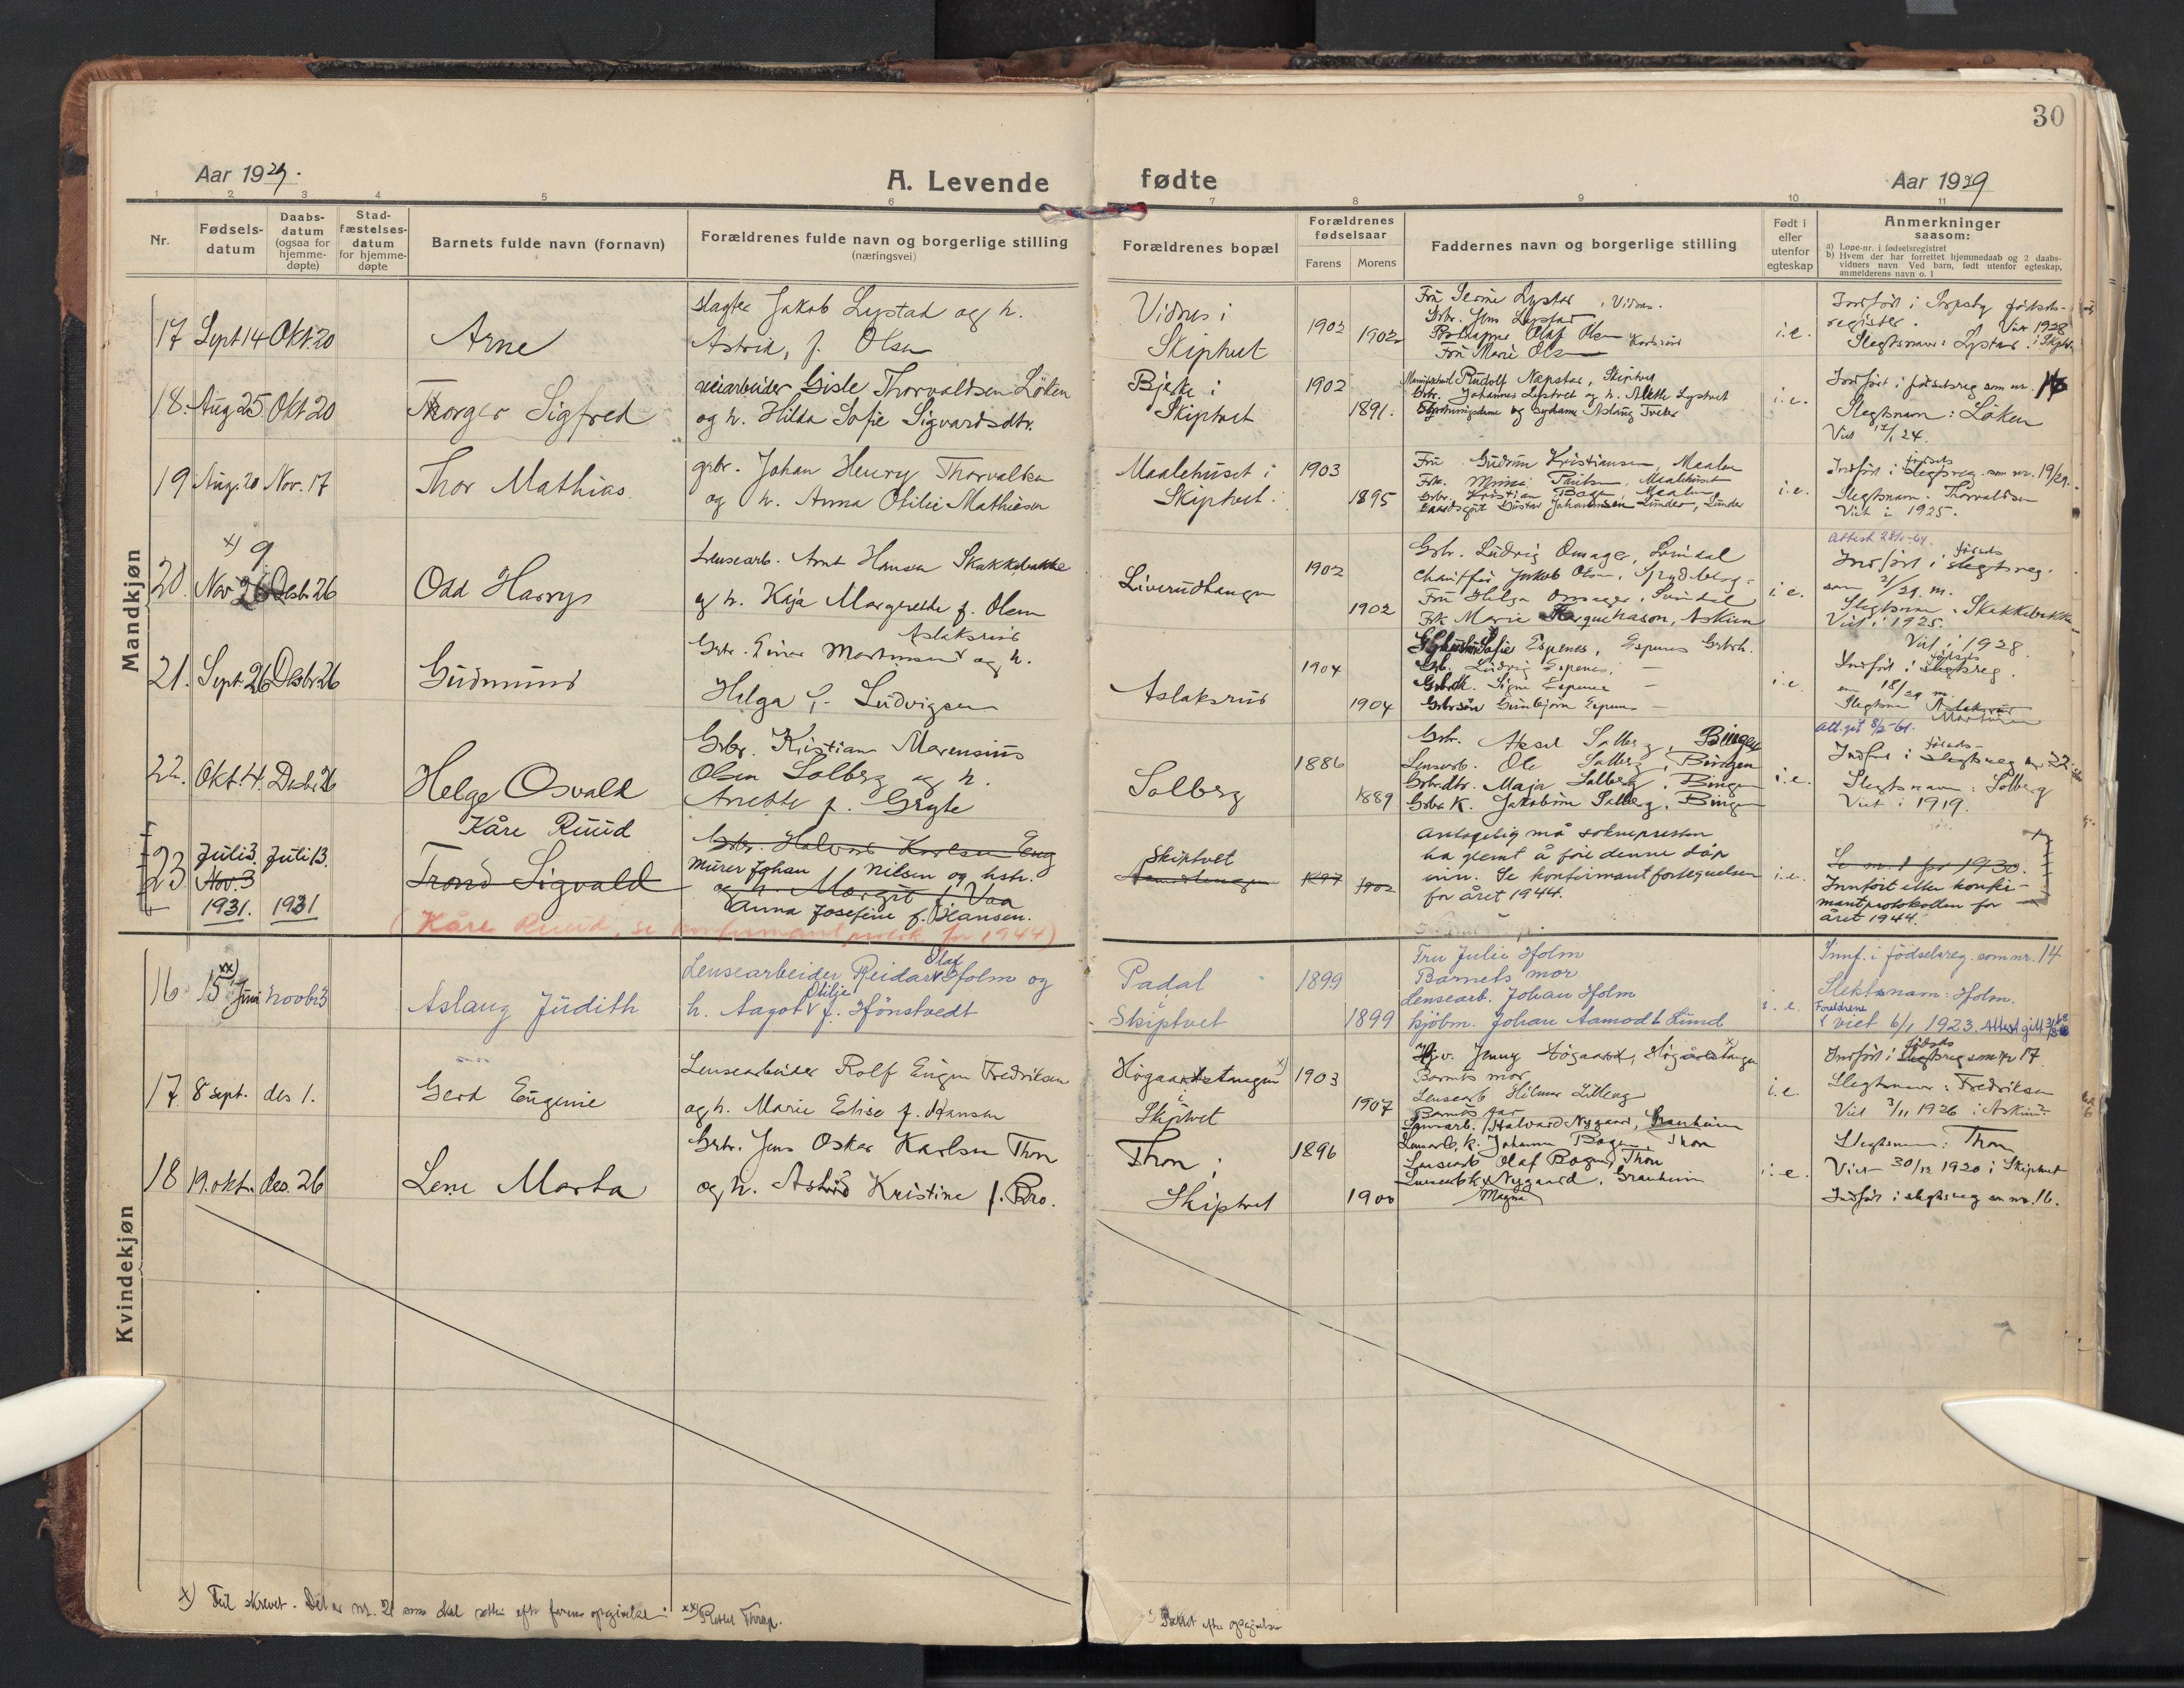 30
Aar 1929.
A. Levende
fødte
Aar 1929
1 2 3 4 5 6 7 8 9 10 11
Nr.
Fødsels-
datum
Daabs-
datum
(ogsaa for
hjemme-
døpte)
Stad-
fæstelses-
datum
for hjemme-
døpte
Barnets fulde navn (fornavn)
Forældrenes fulde navn og borgerlige stilling
(næringsvei)
Forældrenes bopæl
Forældrenes
fødselsaar
Farens
Morens
Faddernes navn og borgerlige stilling
Født i
eller
utenfor
egteskap
Anmerkninger
saasom:
a) Løpe-nr. i fødselsregistret
b) Hvem der har forrettet hjemmedaab og 2 daabs-
vidners navn Ved barn, født utenfor egteskap,
anmelderens navn o. l
Mandkjøn
17 Sept 14 Okt. 20
Arne
slagter Jakob Lystad og h.
Astrid, f. Olsen
Vidnes i
Skiptvet
1902
1902
Gbr. Jens Lystad
Olaf Olsen
Fru Marie Olsen
i.e.
Indført i
register. Viet 1928
Slegtsnavn: Lystad
18. Aug 25. Okt 20
Thorger Sigfred
veiarbeider Gisle Thorvaldsen Löken
og h. Hilda Sofie Sigvardsdtr.
Bjerke i
Skiptvet
1902
1891.
Rudolf Næpstad, Skiptvet
Gbr. Johannes Lystvet og h. Alette Lystvet
i.e.
Indført i fødselsreg som nr.
Slegtsnavn: Løken
19 Aug. 20 Nov. 17
Thor Mathias
gbr. Johan Henry Thorvaldsen
og h. Anna Otilie Mathiesen
Maalehuset i
Skiptvet.
1903
1895
Fru Gudrun Kristiansen, Maalen
i.e.
Indført i fødselsreg. som nr. 19/29.
Slegtsnavn. Thorvaldsen
Viet i 1925.
x) 9
20. Nov 26 Desbr. 26
Odd Harry
Lensearb. Arnt Hansen Skakkebakke
og h. Kaja Margrethe f. Olsen
Liverudhaugen
1902
1902
Gbr. Ludvig Omager, Svindal
Chauffør Jakob Olsen, Spydeberg
Fru Helga Omager, Svindal
i e.
Indført i fødsels slegtsreg.
som 21/29. m.
Slegtsnavn. Skakkebakke
Viet i 1925.
21. Sept. 26 Desbr. 26
Gudmund
Aslaksrud
Gbr. Einar Martinsen og h.
Helga f. Ludvigsen
Aslaksrud
1904
1904
Gbr. Ludvig Espenes
Signe Espenes
i.e.
Viet i 1928.
Indført i fødsels slegtsreg.
18/29 m.
Slegtsnavn Aslaksrud
Martinsen
22. Okt. 4. Desbr. 26
Helge Osvald
Gbr. Kristian Marensius
Olsen Solberg og h.
Anette f. Gryte
Solberg
1886
1889
Gbr. Aksel Solberg, Bingen
Lensearb. Ole Solberg, Bingen
Gbrdtr. Maja Solberg, Bingen
Gbr.k. Jakobine Solberg, Bingen
i.e.
Slegtsnavn: Solberg
Viet i 1919.
23 Juli 3. Juli 13.
Nov. 3
1931. 1931
Kåre Ruud
Trond Sigvald
Gbr. Halvord Karlsen Eng
Murer Johan Nilsen og hstr.
og h. Margit f. Vaa
Anna Josefine f. Hansen.
Skiptvet
1897
1902
Antagelig må soknepresten
ha glemt å føre denne dåp
inn. Se konfirmantfortegnelsen
for året 1944.
i.e.
Se nr. 1 for 1930.
Innført etter konfir-
mantprotokollen for
året 1944.
(Kåre Ruud, se konfirmant protok. for 1944)
Kvindekjøn
16 xx) 15 Juni novbr 3
Aslaug Judith
Olaf
Lensearbeider Reidar Holm og
Otilie
h. Aagot f. Hønstvedt
Padal
i
Skiptvet
1899
1899
Fru Julie Holm
Barnets mor
Lensearb. Johan Holm
kjøbm. Johan Aamodt Lund
i. e.
Innf. i fødselsreg. som nr. 14
Slektsnam: Holm.
Foreldrene
viet 6/1 1923.
17. 8 sept. des 1.
Gerd Eugenie
Lensearbeider Rolf Eugen Fredriksen
og h. Marie Elise f. Hansen
Høgaardstangen x)
i
Skiptvet
1903
1907
Barnets mor
Lensearb Hilmar Lilleng
Barnets far
i.e.
Indført i fødsels slegtsreg som nr 17
Slegtsnavn: Fredriksen
Viet 3/11 1926 i Askim.
18 19. okt. des. 26
Lene Marta
Gbr. Jens Oskar Karlsen Thon
og h. Astrid Kristine f. Bro.
Thon i
Skiptvet
1896
1900
Lensearb. Halvard Nygaard, Granheim
Lensearb. k. Johanne Bogen, Thon
Lensearb Olaf Bogen, Thon
Lensearb k x Nygaard, Granheim
Magna
i. e.
Slegtsnavn: Thon
Viet 30/12 1920 i Skiptvet
Indført i slegtsreg som nr. 16.
x) Feil skrevet. Det er nr. 21 som skal rettes efter farens opgivelse.
xx) Rettet Thrap.
x) Rettet efter opgivelse